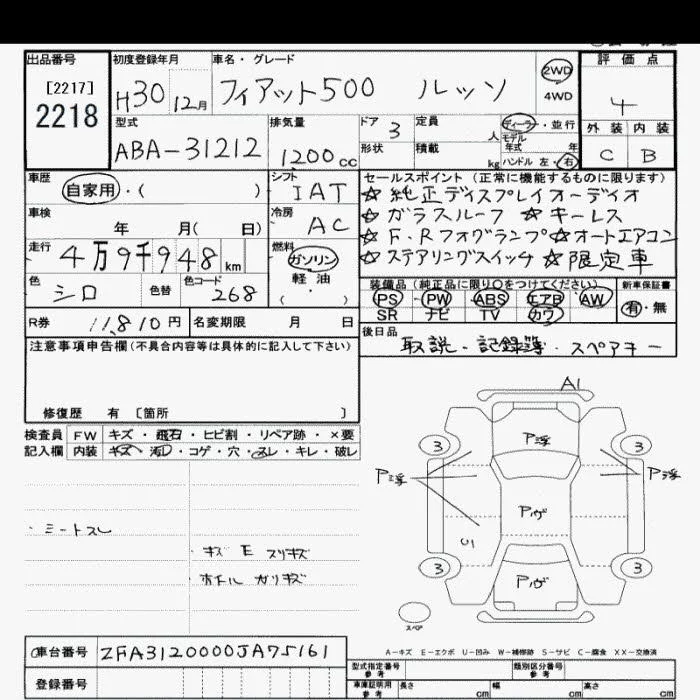 出品番号 初度登録年月 車名・グレード 評価点
[2217]
2218
H30 12月 フィアット500 ルッソ 2WD 4WD 4
型式 排気量 ドア 3 定員 人 ディーラー・並行
モデル年式 年
外装 内装
ABA-31212 1200cc 形状 積載 kg ハンドル 左・右 C B
車歴 シフト セールスポイント(正常に機能するものに限ります)
自家用・( ) IAT ☆純正ディスプレイオーディオ
車検 冷房 ☆ガラスルーフ ☆キーレス
年 月( 日) AC ☆F.Rフォグランプ ☆オートエアコン
走行 燃料 ☆ステアリングスイッチ ☆限定車
4万9千948km ガソリン 軽油 ( )
色 色替 色コード 装備品(純正品に限り○をつけてください) 新車保証書
シロ 268 PS PW ABS エアB AW 有・無
SR ナビ TV カワ
R券 11,810円 名変期限 月 日 後日品
取説・記録簿・スペアキー
注意事項申告欄(不具合内容等は具体的に記入して下さい)
修復歴 有 〔箇所 〕
検査員 FW キズ・飛石・ヒビ割・リペア跡・×要
記入欄 内装 キズ・汚レ・コゲ・穴・スレ・キレ・破レ
A1
P浮
3 3
P浮 P浮
Pハゲ
U1
3 3
Pハゲ
・シートスレ
・キズ E スリキズ
・ホイル ガリキズ
スペア
A-キズ E-エクボ U-凹み W-補修跡 S-サビ C-腐食 XX-交換済
車台番号 ZFA3120000JA75161
登録番号
型式指定番号 参考 類別区分番号 参考
車庫証明用 参考 長さ cm 幅 cm 高さ cm